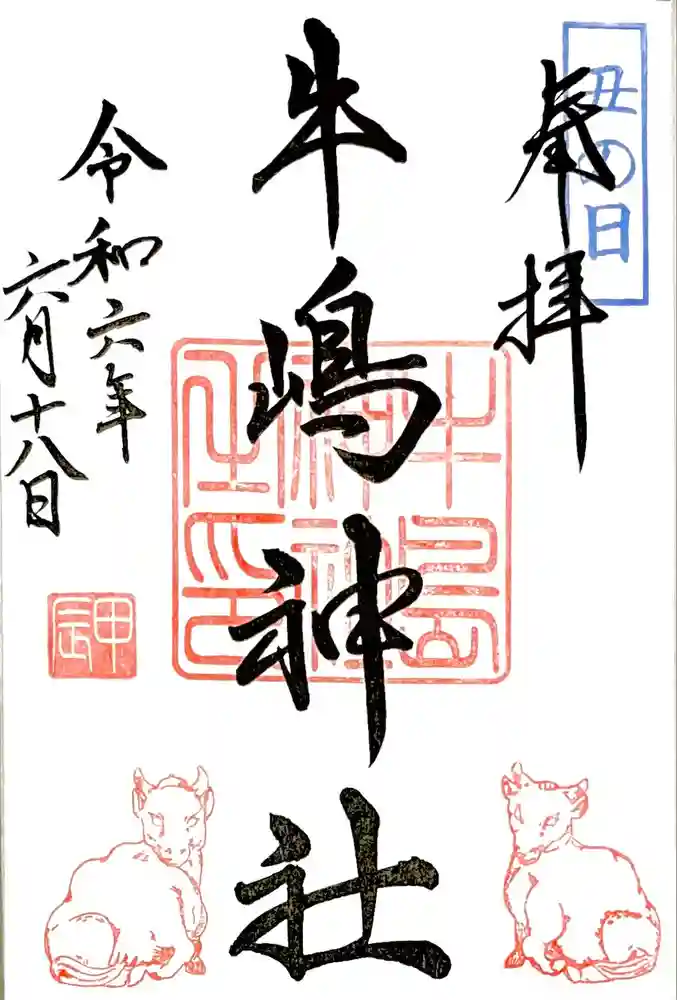 丑の日
奉拝
牛嶋神社
牛嶋
神社印
令和六年
六月十八日
甲辰